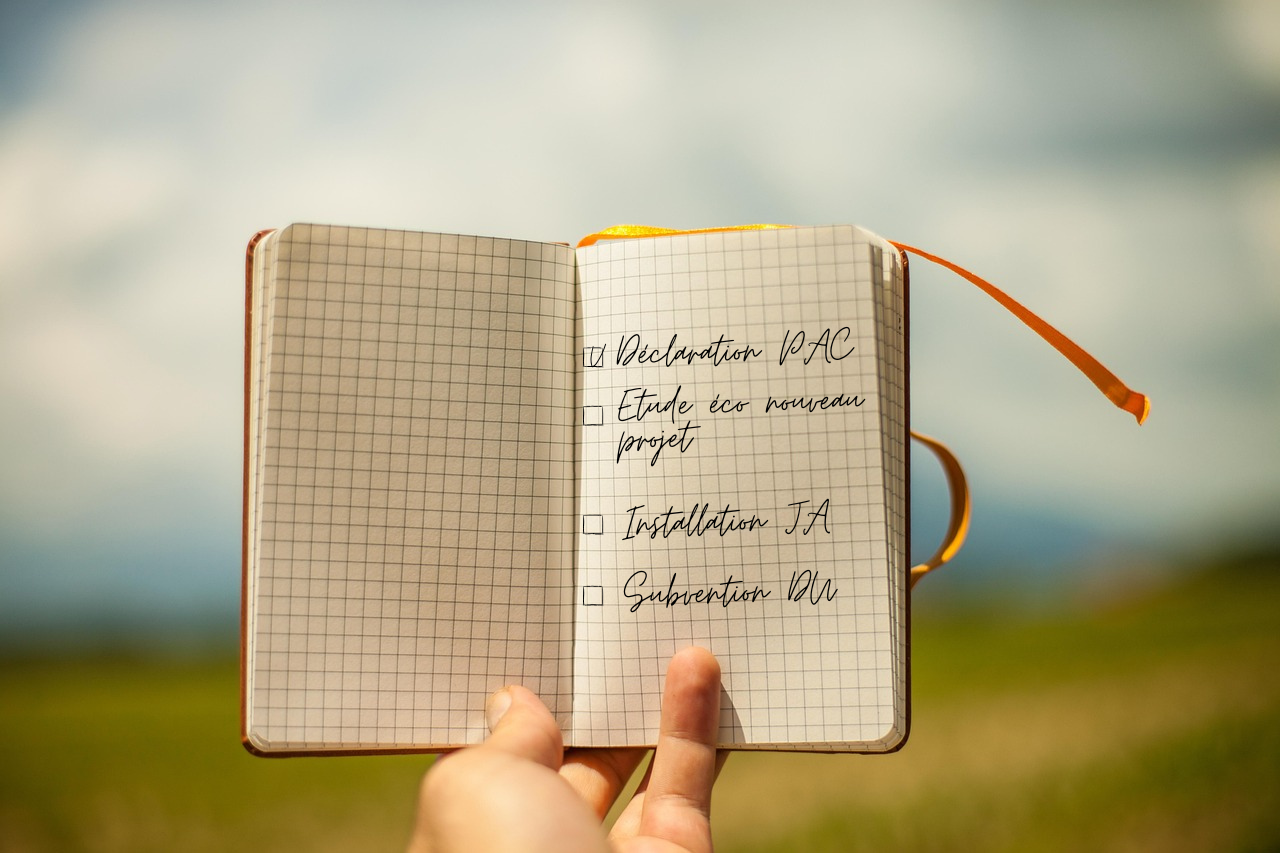 Déclaration PAC
Etude éco nouveau
projet
Installation JA
Subvention DU